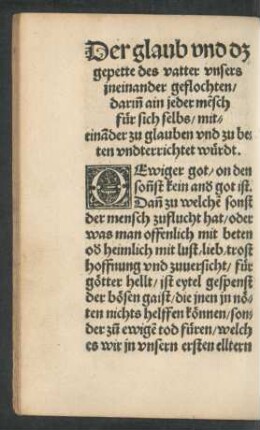 Der glaub vnd dz
gepette des vatter vnsers
jneinander geflochten/
dariñ ain jeder mẽsch
für sich selbs/ mit-
einãder zu glauben vnd zu be-
ten vndterrichtet würdt.
O Ewiger got/ on den
soñst kein and͛ got ist.
Dañ zu welchẽ sonst
der mensch zuflucht hat/ oder
was man offenlich mit beten
od͛ heimlich mit lust/ lieb/ trost
hoffnung vnd zuuersicht/ für
götter hellt/ ist eytel gespenst
der bösen gaist/ die jnen jn nö-
ten nichts helffen können/ son-
der zů ewigẽ tod füren/ welch
es wir jn vnsern ersten elltern